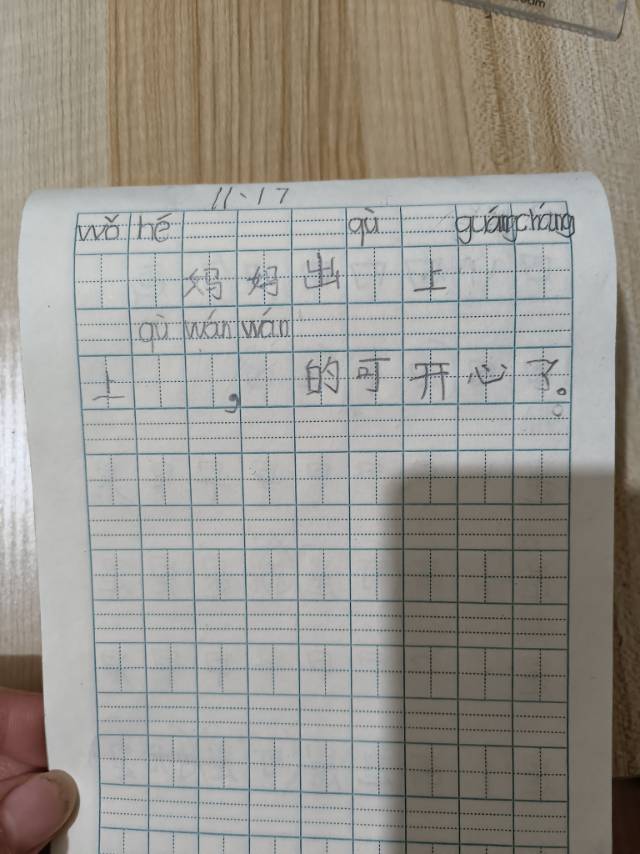 11.17
wǒ hé qù guángcháng
妈妈出上
qù wán wán
上，的可开心了。